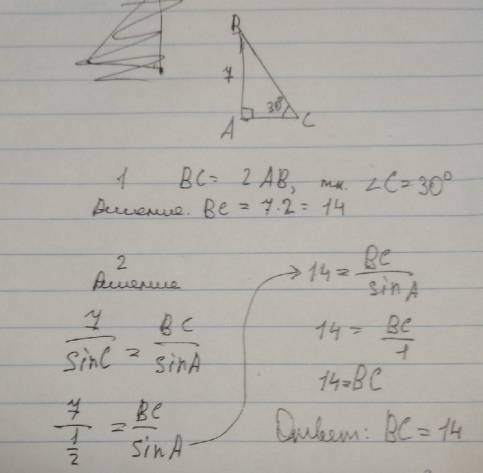 B
7
30°
A C
1 BC = 2 AB, т.к. ∠C = 30°
Решение. BC = 7·2 = 14
2
Решение
7/SinC = BC/sinA
7/(1/2) = BC/sinA
14 = BC/sinA
14 = BC/1
14=BC
Ответ: BC = 14